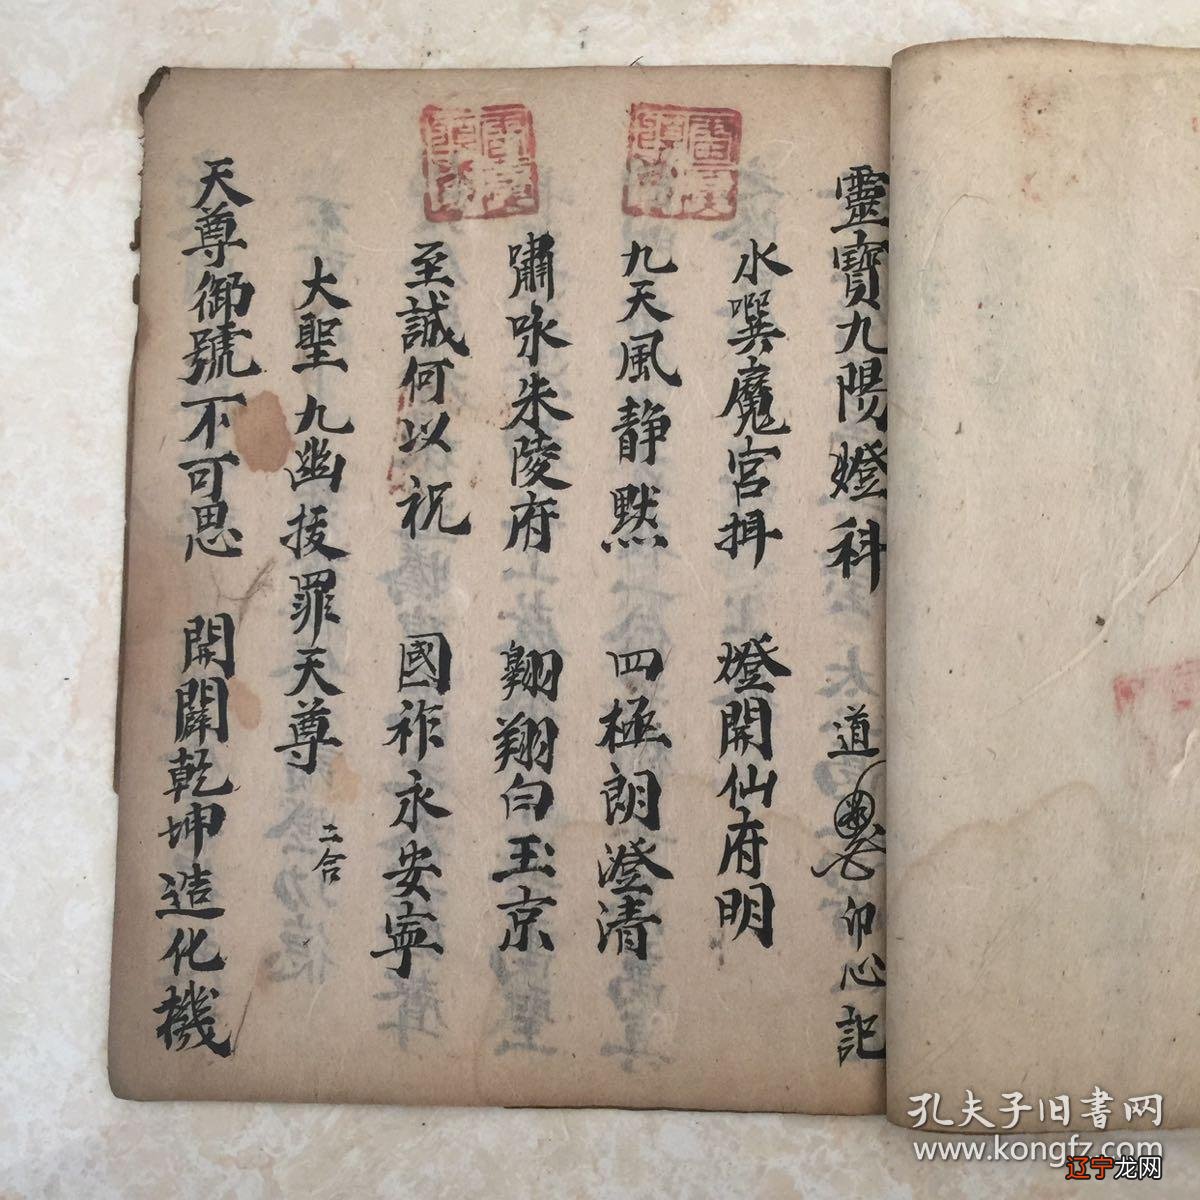 靈寶九陽燈科 道 印心記
水噀魔宮 燈開仙府明
九天風静默 四極朗澄清
嘯咏朱陵府 翺翔白玉京
至誠何以祝 國祚永安寧
大聖九幽拔罪天尊 二合
天尊御號不可思 開闢乾坤造化機
孔夫子旧書网
www.kongfz.com
辽宁龙网